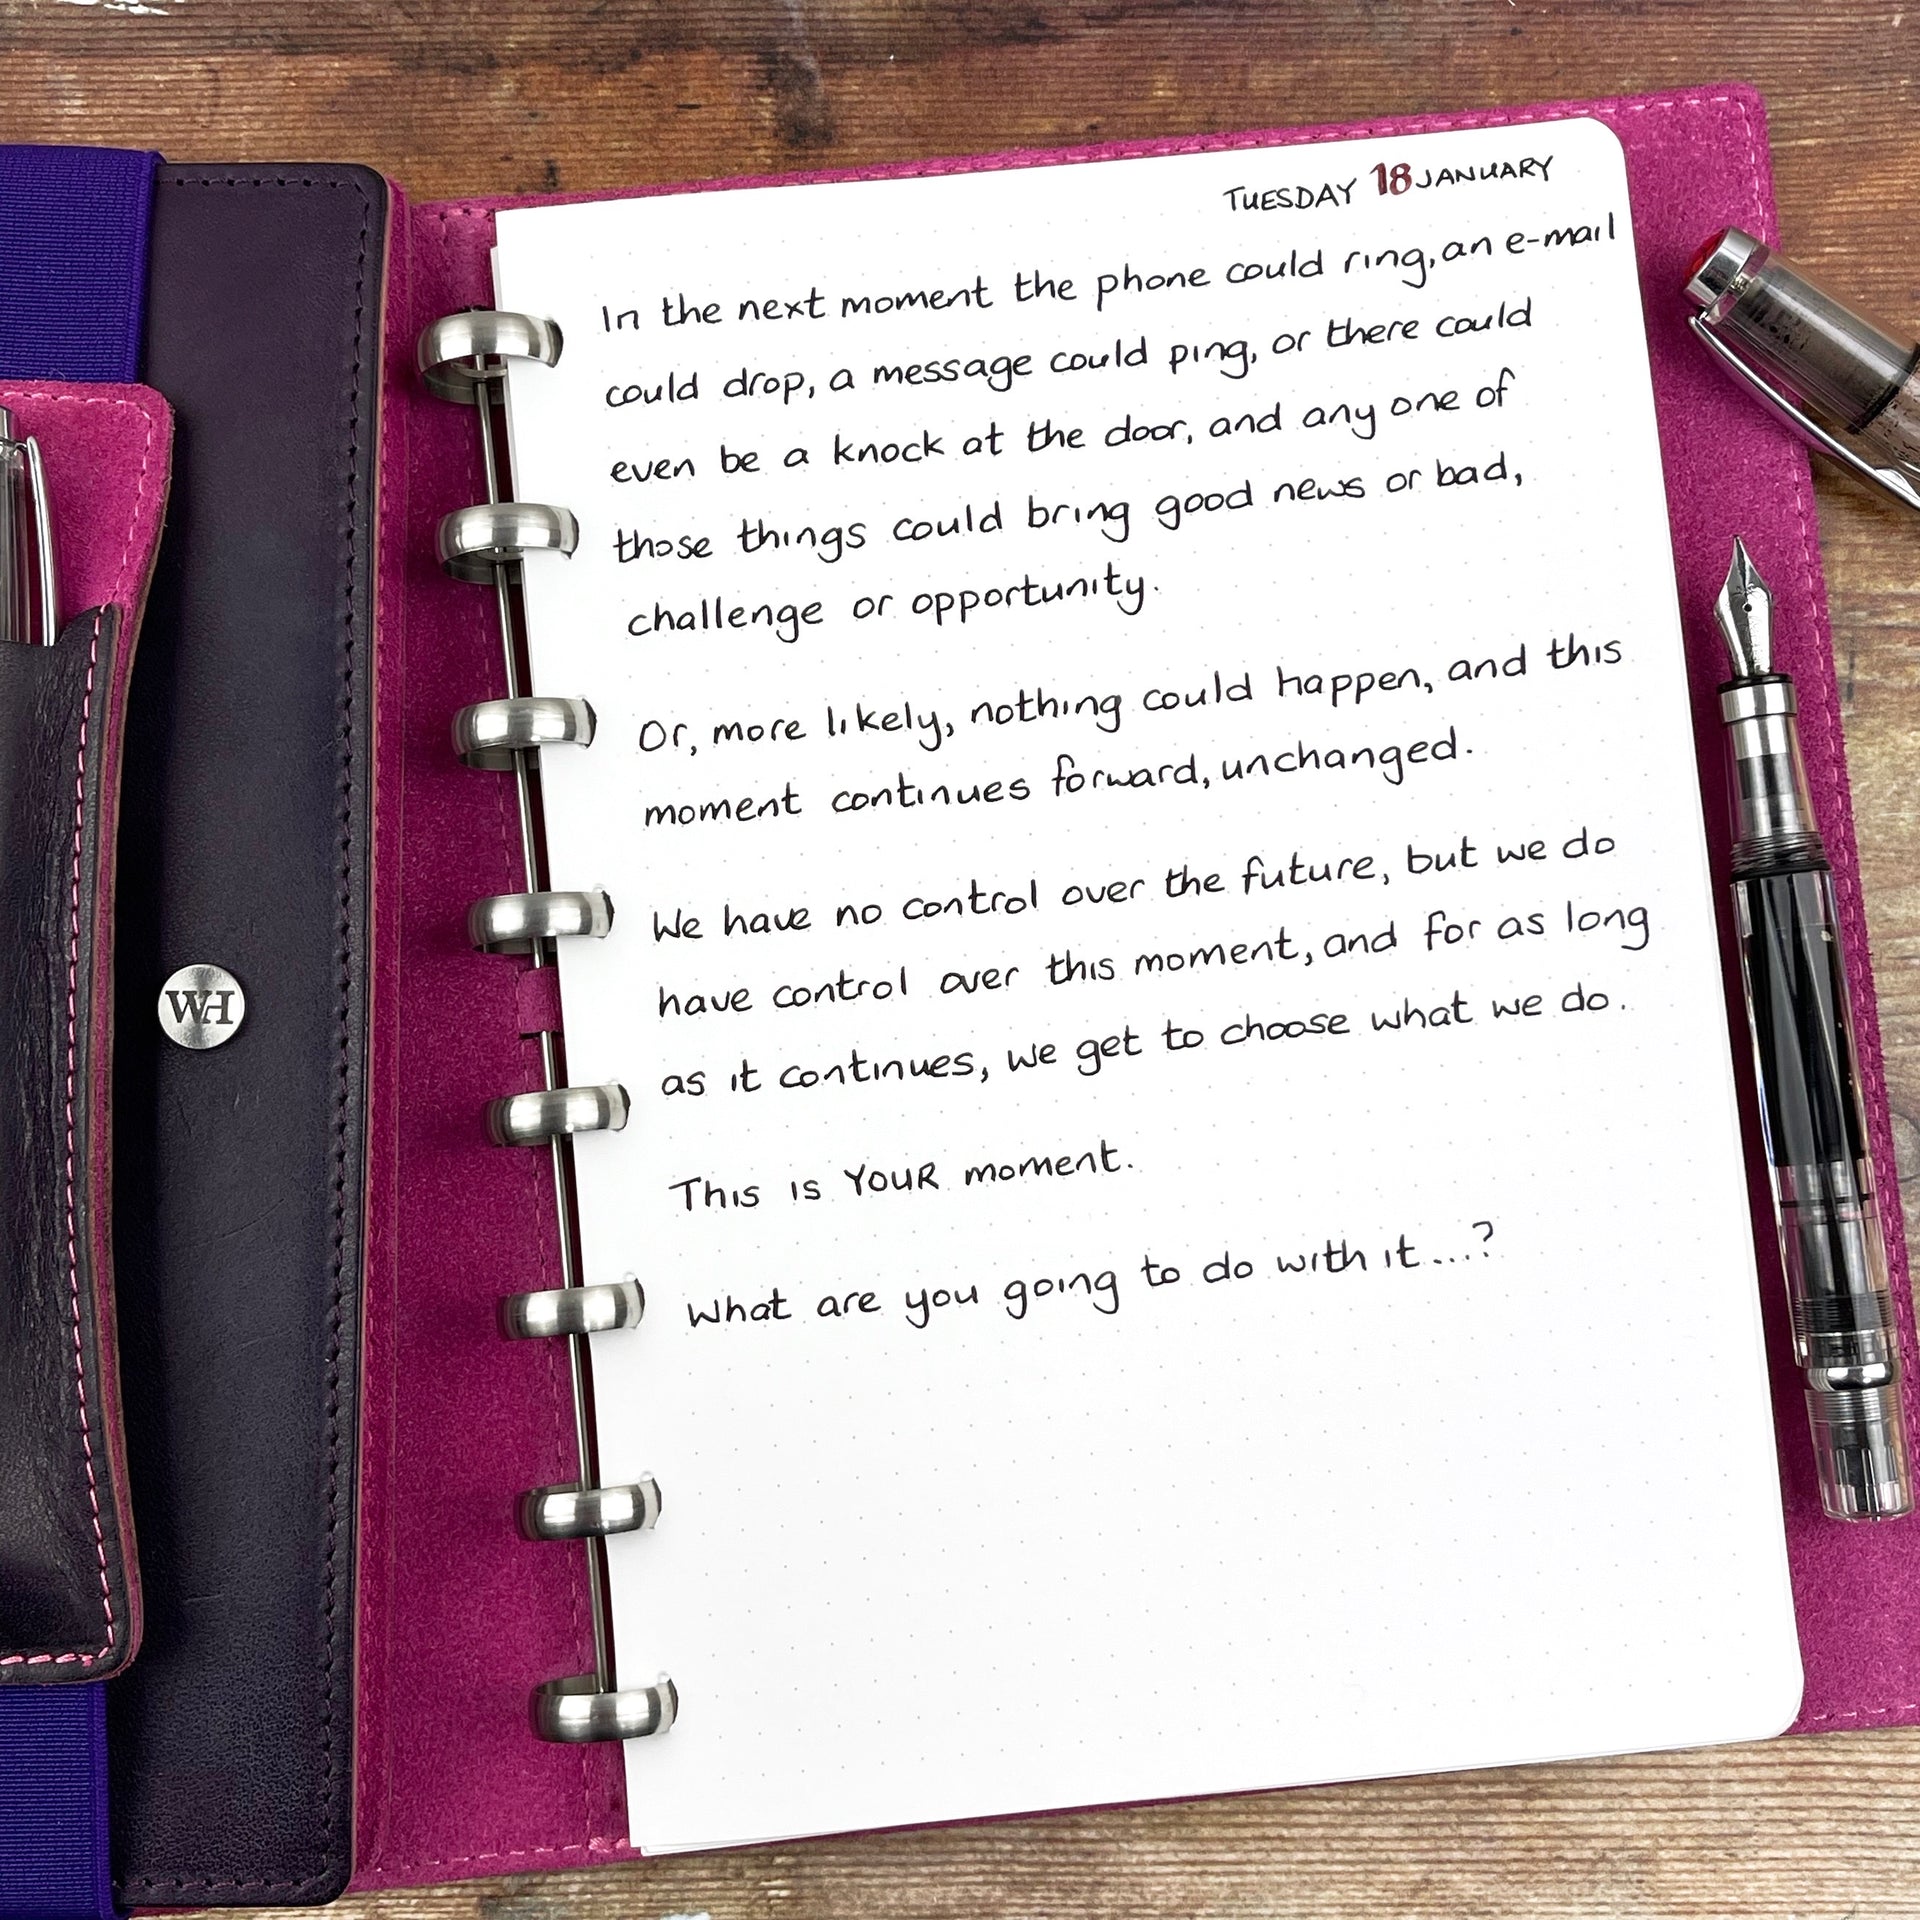 TUESDAY 18 JANUARY
In the next moment the phone could ring, an e-mail
could drop, a message could ping, or there could
even be a knock at the door, and any one of
those things could bring good news or bad,
challenge or opportunity.
Or, more likely, nothing could happen, and this
moment continues forward, unchanged.
We have no control over the future, but we do
have control over this moment, and for as long
as it continues, we get to choose what we do.
This is YOUR moment.
What are you going to do with it...?
WH